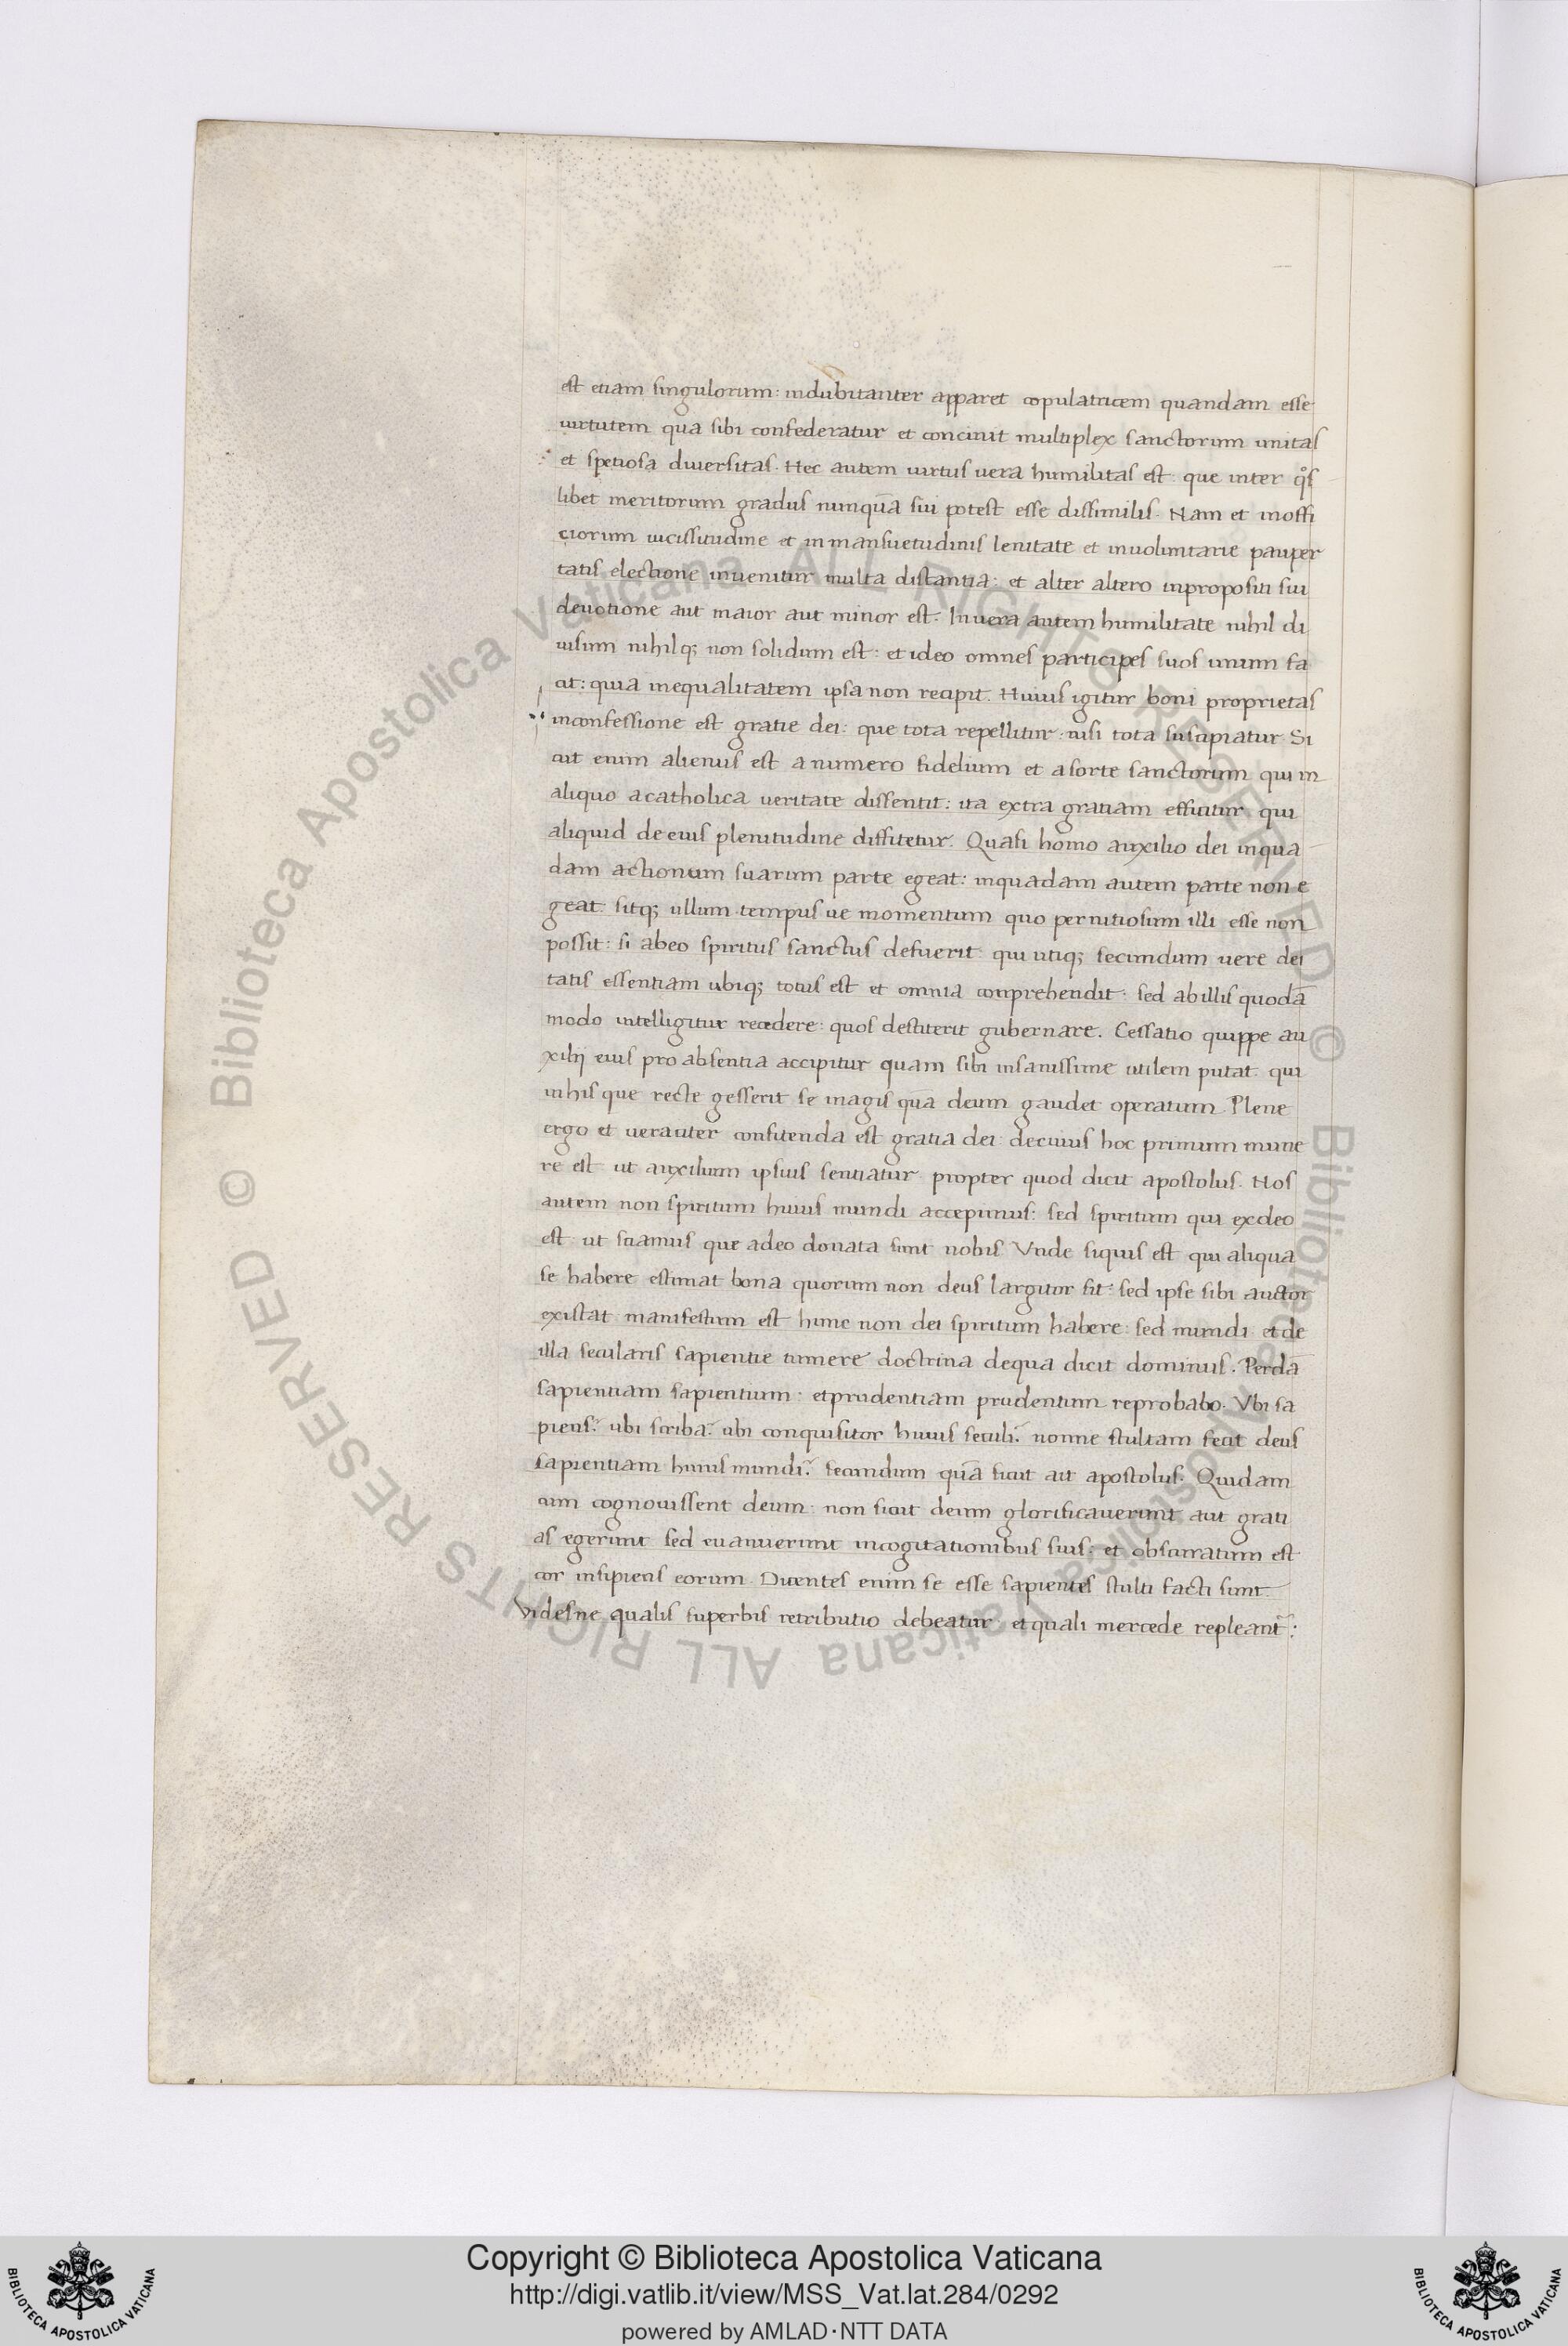 est etiam singulorum: indubitanter apparet copulatricem quandam esse
uirtutem qua sibi confederatur et concinit multiplex sanctorum unitas
et spetiosa diuersitas. Hec autem uirtus uera humilitas est: que inter qͦs
libet meritorum gradus nunquā sui potest esse dissimilis. Nam et inoffi
ciorum uicissitudine et in mansuetudinis lenitate et inuoluntarie pauper
tatis electione inuenitur multa distantia: et alter altero inpropositi sui
deuotione aut maior aut minor est. Inuera autem humilitate nihil di
uisum nihilq; non solidum est: et ideo omnes participes suos unum fa
cit: quia inequalitatem ipsa non recipit. Huius igitur boni proprietas
inconfessione est gratie dei: que tota repellitur: nisi tota suscipiatur. Si
cut enim alienus est anumero fidelium et asorte sanctorum qui in
aliquo acatholica ueritate dissentit: ita extra gratiam efficitur qui
aliquid deeius plenitudine diffitetur. Quasi homo auxilio dei inqua
dam actionum suarum parte egeat: inquadam autem parte non e
geat. sitq; ullum tempus ue momentum quo pernitiosum illi esse non
possit: si abeo spiritus sanctus defuerit. qui utiq; secundum uere dei
tatis essentiam ubiq; totus est et omnia conprehendit: sed abillis quodā
modo intelligitur recedere: quos destiterit gubernare. Cessatio quippe au
xilij eius pro absentia accipitur quam sibi insanissime utilem putat. qui
inhis que recte gesserit se magis quā deum gaudet operatum. Plene
ergo et ueraciter confitenda est gratia dei: decuius hoc primum mune
re est ut auxilium ipsius sentiatur propter quod dicit apostolus. Nos
autem non spiritum huius mundi accepimus: sed spiritum qui exdeo
est: ut sciamus que adeo donata sunt nobis Vnde siquis est qui aliqua
se habere estimat bona quorum non deus largitor sit: sed ipse sibi auctor
existat: manifestum est hunc non dei spiritum habere: sed mundi: et de
illa secularis sapientie tumere doctrina dequa dicit dominus. Perdā
sapientiam sapientum: etprudentiam prudentum reprobabo. Vbi sa
piens? ubi scriba? ubi conquisitor huius seculi? nonne stultam fecit deus
sapientiam huius mundi? secundum quā sicut ait apostolus. Quidam
cum cognouissent deum: non sicut deum glorificauerunt aut grati
as egerunt sed euanuerunt incogitationibus suis: et obscuratum est
cor insipiens eorum. Dicentes enim se esse sapientes stulti facti sunt.
Videsne qualis superbis retributio debeatur: etquali mercede repleant̃:
Copyright © Biblioteca Apostolica Vaticana
http://digi.vatlib.it/view/MSS_Vat.lat.284/0292
powered by AMLAD·NTT DATA
BIBLIOTECA APOSTOLICA VATICANA
BIBLIOTECA APOSTOLICA VATICANA
© Biblioteca Apostolica Vaticana ALL RIGHTS RESERVED
© Biblioteca Apostolica Vaticana ALL RIGHTS RESERVED